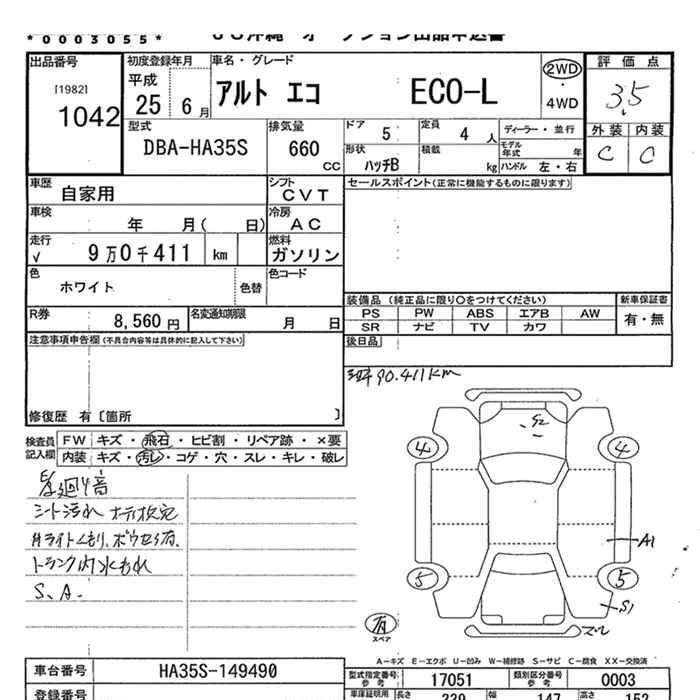 *0003055*
出品番号
[1982]
1042
初度登録年月
平成
25 6 月
車名・グレード
アルト エコ ECO-L
2WD
・
4WD
評価点
3.5
外装 内装
C C
型式
DBA-HA35S
排気量
660
CC
ドア 5
定員 4 人
ディーラー・並行
形状
ハッチB
積載 kg
モデル年式 年
ハンドル 左・右
車歴
自家用
シフト
CVT
セールスポイント(正常に機能するものに限ります)
車検
年 月( 日)
冷房
AC
走行
√ 9万0千411 km
燃料
ガソリン
色
ホワイト
色替
色コード
装備品 (純正品に限り○をつけてください)
新車保証書
PS PW ABS エアB AW
有・無
SR ナビ TV カワ
R券
8,560 円
名変通知期限
月 日
後日品
注意事項申告欄(不具合内容等は具体的に記入して下さい)
90.411km
修復歴 有〔箇所 〕
検査員
記入欄
FW キズ・飛石・ヒビ割・リペア跡・×要
内装 キズ・汚レ・コゲ・穴・スレ・キレ・破レ
シート汚れ
トランク内水もれ
S.A.
G2
4 4
A1
5 5
S1
有
スペア
A-キズ E-エクボ U-凹み W-補修跡 S-サビ C-腐食 XX-交換済
車台番号
HA35S-149490
型式指定番号
参考
17051
類別区分番号
参考
0003
登録番号
車庫証明用
長さ 339 幅 147 高さ 152